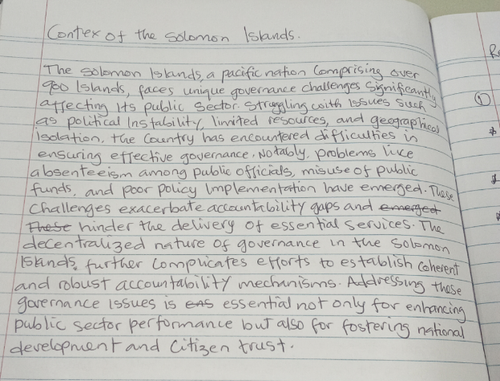 Contex of the Solomon Islands.
The Solomon Islands, a pacific nation comprising over
900 Islands, faces unique governance challenges significantly
affecting its public sector. Struggling with issues such
as political instability, limited resources, and geographical
isolation, the country has encountered difficulties in
ensuring effective governance. Notably, problems like
absenteeism among public officials, misuse of public
funds, and poor policy implementation have emerged. These
challenges exacerbate accountability gaps and emerged
These hinder the delivery of essential services. The
decentralized nature of governance in the Solomon
Islands, further complicates efforts to establish coherent
and robust accountability mechanisms. Addressing these
governance issues is eas essential not only for enhancing
public sector performance but also for fostering national
development and citizen trust.
R
1